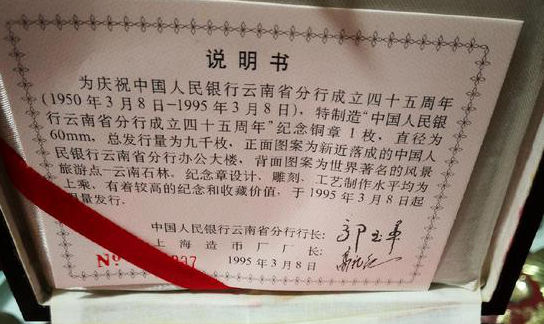 说明书
为庆祝中国人民银行云南省分行成立四十五周年
(1950年3月8日-1995年3月8日),特制造“中国人民银
行云南省分行成立四十五周年”纪念铜章1枚,直径为
60mm,总发行量为九千枚,正面图案为新近落成的中国人
民银行云南省分行办公大楼,背面图案为世界著名的风景
旅游点—云南石林。纪念章设计、雕刻、工艺制作水平均为
上乘,有着较高的纪念和收藏价值,于1995年3月8日起
量发行。
中国人民银行云南省分行行长:
上海造币厂厂长:
No
1995年3月8日